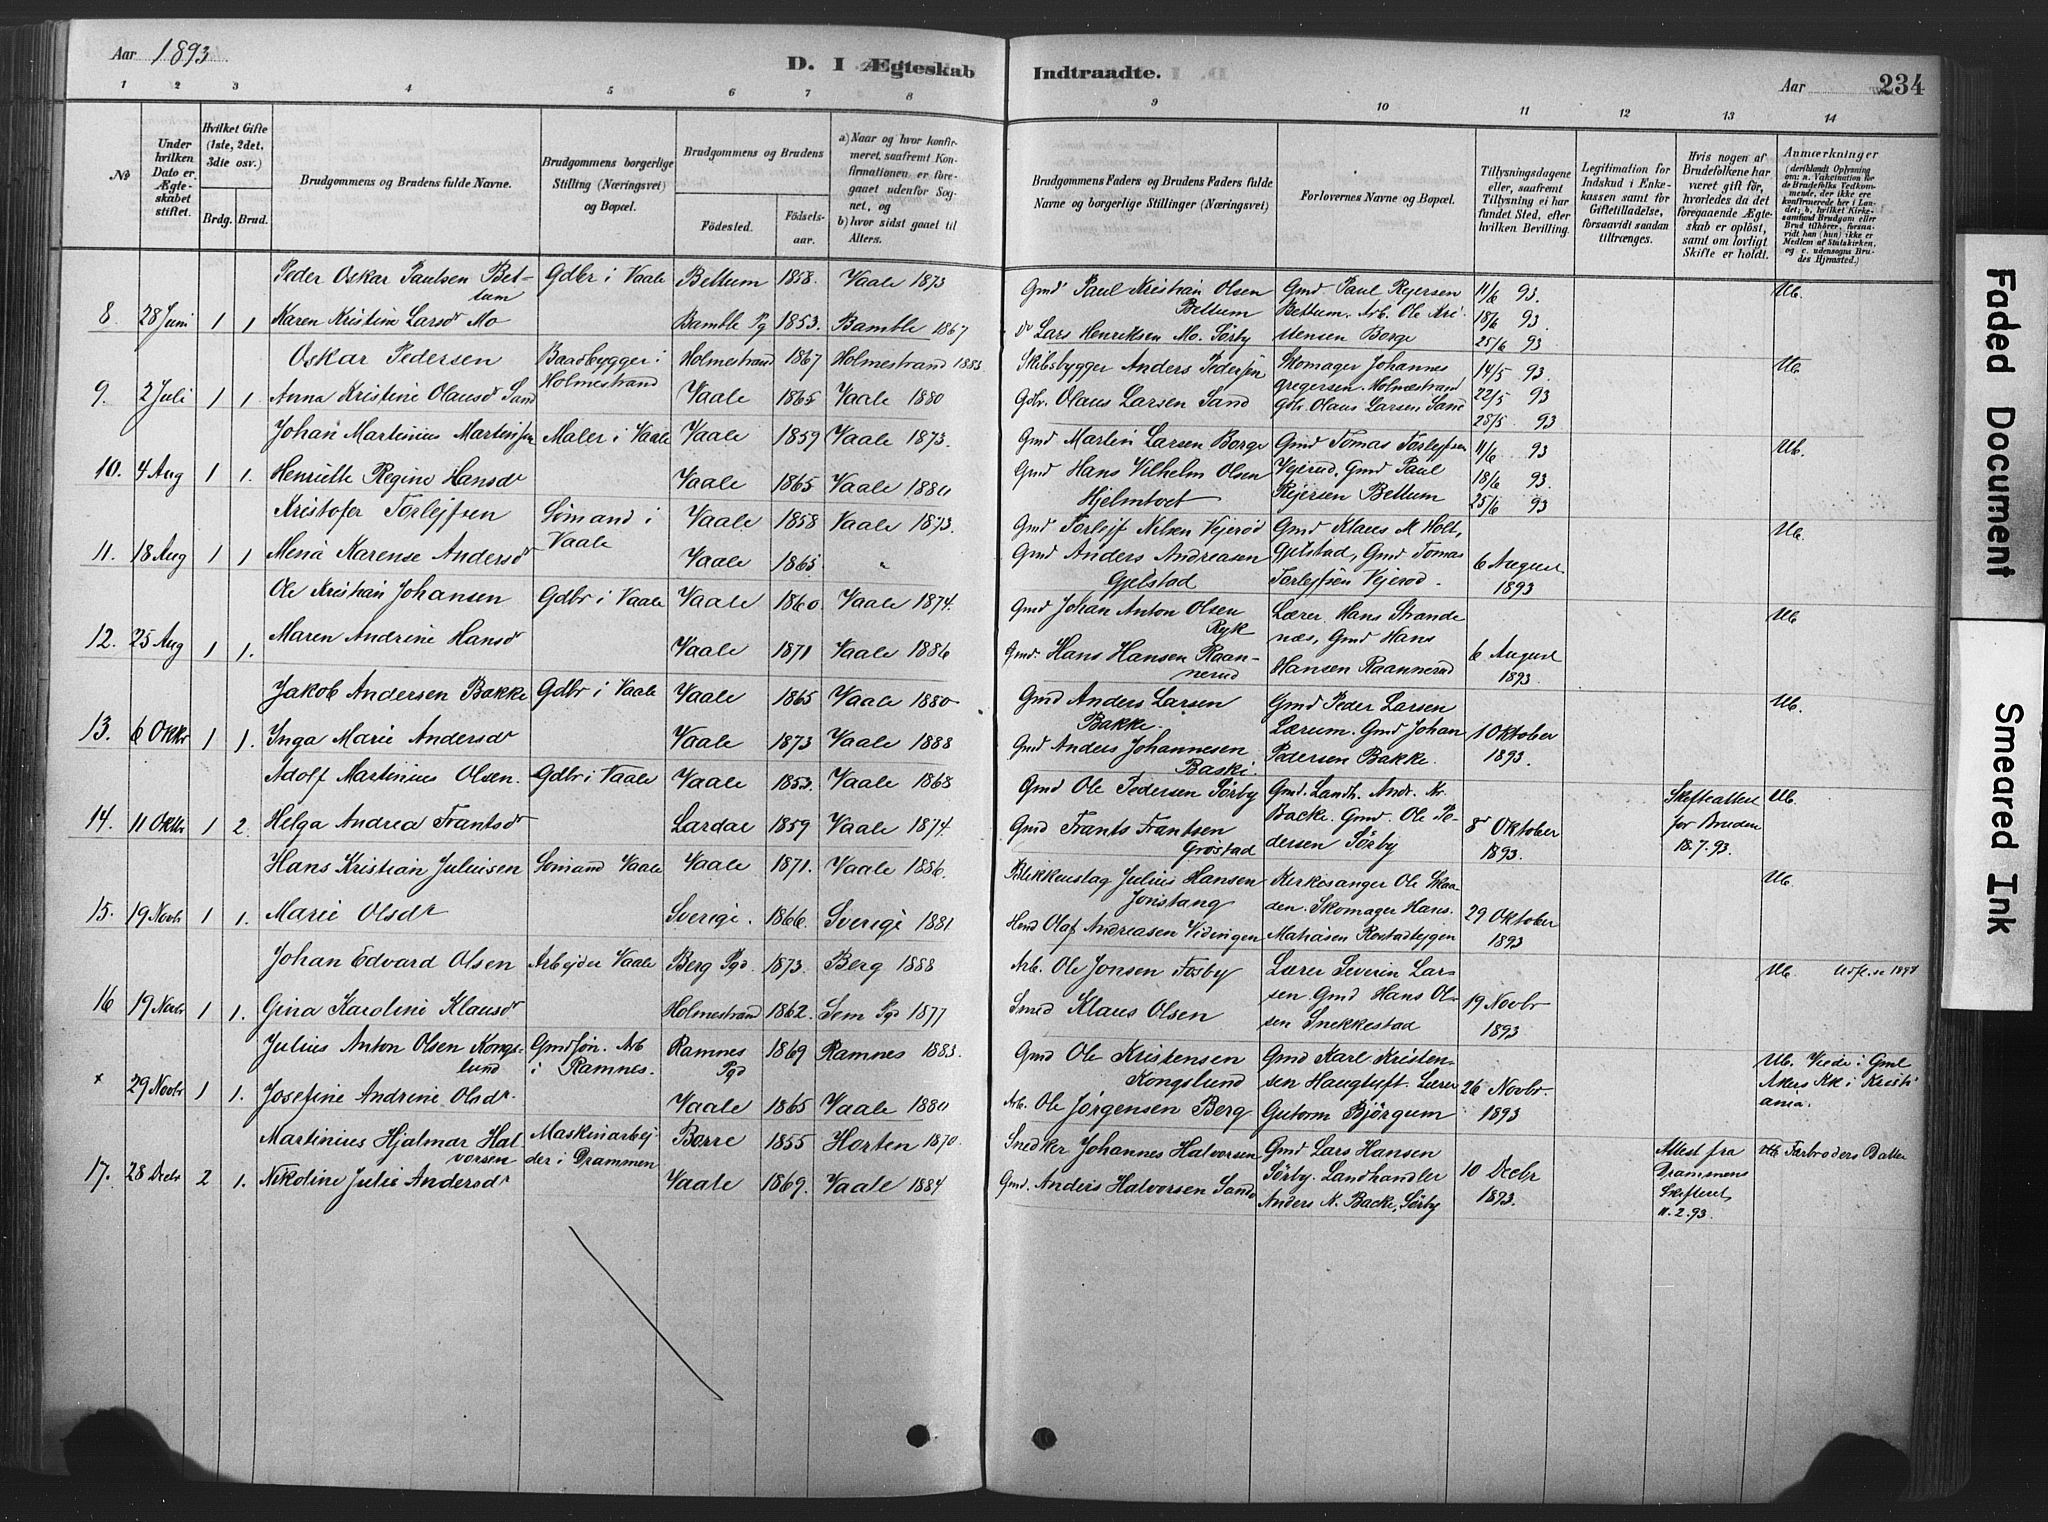 Aar 1893
D. I Ægteskab Indtraadte.
Aar 234
1 2 3 4 5 6 7 8 9 10 11 12 13 14
№
Under hvilken Dato er Ægteskabet stiftet.
Hvilket Gifte (1ste, 2det, 3die osv.)
Brdg. Brud.
Brudgommens og Brudens fulde Navne.
Brudgommens borgerlige Stilling (Næringsvei) og Bopæl.
Brudgommens og Brudens
Fødested.
Fødselsaar.
a) Naar og hvor konfirmeret, saafremt Konfirmationen er foregaaet udenfor Sognet, og
b) hvor sidst gaaet til Alters.
Brudgommens Faders og Brudens Faders fulde Navne og borgerlige Stillinger (Næringsvei)
Forlovernes Navne og Bopæl.
Tillysningsdagene eller, saafremt Tillysning ei har fundet Sted, efter hvilken Bevilling.
Legitimation for Indskud i Enkekassen samt for Giftetilladelse, forsaavidt saadan tiltrænges.
Hvis nogen af Brudefolkene har været gift før, hvorledes da det foregaaende Ægteskab er opløst, samt om lovligt Skifte er holdt.
Anmærkninger
(deriblandt Oplysning om: a. Vakcination for de Brudefolks Vedkommende, der ikke ere konfirmerede her i Landet; b. hvilket Kirkesamfund Brudgom eller Brud tilhører, forsaavidt han (hun) ikke er Medlem af Statskirken, og c. udensogns Brudes Hjemsted.)
Peder Oskar Paulsen Bettum Gdbr i Vaale Bettum 1858. Vaale 1873
8. 28 Juni 1 1 Karen Kristine Larsdr Mo Bamble Pg 1853. Bamble 1867
Gmd Paul Kristian Olsen Bettum
Do Lars Henriksen Mo. Sørby
Gmd Paul Rejersen
Bettum. Arb. Ole Kri-
stensen Borge
11/6 93.
18/6 93.
25/6 93
Ub.
Oskar Pedersen Baadbygger i Holmestrand Holmestrand 1867 Holmestrand 1883
9. 2 Juli 1 1. Anna Kristine Olausdr Sand Vaale 1865 Vaale 1880
Skibsbygger Anders Pedersen
Gdbr. Olaus Larsen Sand
Skomager Johannes
Gregersen. Holmestrand
Gdbr. Olaus Larsen Sand
14/5 93.
22/5 93
28/5 93
Ub.
Johan Martinius Martinsen Maler i Vaale Vaale 1859 Vaale 1873.
10. 4 Aug 1 1. Henriette Regine Hansdr Vaale 1865 Vaale 1880
Gmd Martin Larsen Borge
Gmd Hans Vilhelm Olsen
Hjelmtvet
Gmd Tomas Torlejfsen
Vejerud, Gmd Paul
Rejersen Bettum
11/6 93
18/6 93.
25/6 93
Ub.
Kristofer Torlejfsen Sømand i Vaale Vaale 1858 Vaale 1873.
11. 18 Aug 1 1 Mena Karense Andersdr Vaale 1865 "
Gmd Torlejf Nilsen Vejerød
Gmd Anders Andreasen
Gjelstad
Gmd Klaus M Holt,
Gjelstad, Gmd Tomas
Torlejfsen Vejerød.
6 August
1893
Ub.
Ole Kristian Johansen Gdbr i Vaale Vaale 1860. Vaale 1874.
12. 25 Aug 1 1. Maren Andrine Hansdr Vaale 1871 Vaale 1886
Gmd Johan Anton Olsen
Ryk
Gmd. Hans Hansen Raan-
nerud
Lærer Hans Strande
næs, Gmd Hans
Hansen Raannerud
6 August
1893
Ub
Jakob Andersen Bakke Gdbr i Vaale Vaale 1865 Vaale 1880
13. 6 Oktbr 1 1. Inga Marie Andersdr Vaale 1873 Vaale 1888
Gmd Anders Larsen
Bakke.
Gmd Anders Johannesen
Baski.
Gmd Peder Larsen
Lærum. Gmd Johan
Pedersen Bakke.
1 Oktober
1893.
Ub.
Adolf Martinius Olsen. Gdbr i Vaale Vaale 1853. Vaale 1868
14. 11 Oktbr 1 2. Helga Andrea Frantsdr Lardal 1859 Vaale 1874.
Gmd Ole Pedersen Sørby
Gmd Frants Frantsen
Grøstad
Gmd. Landh. Andr. N.
Backe. Gmd. Ole Pe-
dersen Sørby
8d Oktober
1893.
Skifteattest
for Bruden
18.7.93.
Ub.
Hans Kristian Juliusen Sømand Vaale Vaale 1871. Vaale 1886.
15. 19 Novbr 1 1. Marie Olsdr Sverige. 1866. Sverige 1881.
Blikkenslag Julius Hansen
Jonstang
Hmd Olaf Andreasen Vidingen
Kirkesanger Ole Skaa-
den. Skomager Hans
Matiasen Rostadbygen
29 Oktober
1893
Ub.
Johan Edvard Olsen Arbejder Vaale Berg Pgd. 1873. Berg 1888
16 19 Novbr 1 1. Gina Karoline Klausdr Holmestrand 1862. Sem Pgd 1877
Arb. Ole Jonsen Fosby
Smed Klaus Olsen
Lærer Severin Lar-
sen Gmd Hans Ol-
sen Snekkestad
19 Novbr
1893
Ub.
Julius Anton Olsen Kongslund Gmdsøn. Arb i Ramnes. Ramnes Pgd 1869 Ramnes 1883.
x 29 Novbr 1 1. Josefine Andrine Olsdr. Vaale 1865 Vaale 1880
Gmd Ole Kristensen
Kongslund
Arb. Ole Jørgensen Berg
Gmd Karl Kristen-
sen Haugtuft. Lærer
Gutorm Bjørgum
26 Novbr.
1893
Ub. Viede i Gml
Akers Kk i Kristi
ania.
Martinius Hjalmar Halvorsen Maskinarbejder i Drammen Borre 1855 Horten 1870.
17. 28 Decbr 2 1. Nikoline Julie Andersdr Vaale 1869. Vaale 1884
Snedker Johannes Halvorsen
Gmd. Anders Halvorsen Sando
Gmd Lars Hansen
Sørby. Landhandler
Anders N. Backe, Sørby
10 Decbr
1893.
Attest fra
Drammens
Skifteret
11.2.93.
Farbroders Datter
Faded Document
Smeared Ink